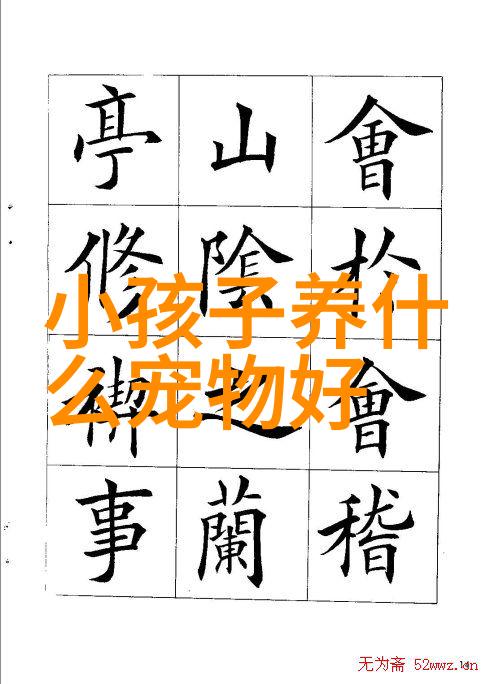 會於會稽
山陰之蘭
亭修禊事
小孩子养什
么宠物好
无为斋 52wwz.cn